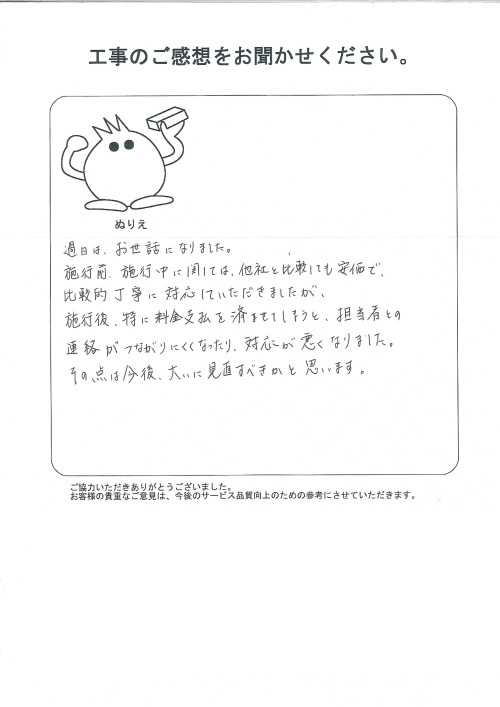 工事のご感想をお聞かせください。
ぬりえ
過日は、お世話になりました。
施行前、施行中に関しては、他社と比較しても安価で、
比較的丁寧に対応していただきましたが、
施行後、特に料金支払を済ませてしまうと、担当者との
連絡がつながりにくくなったり、対応が悪くなりました。
その点は今後、大いに見直すべきかと思います。
ご協力いただきありがとうございました。
お客様の貴重なご意見は、今後のサービス品質向上のための参考にさせていただきます。